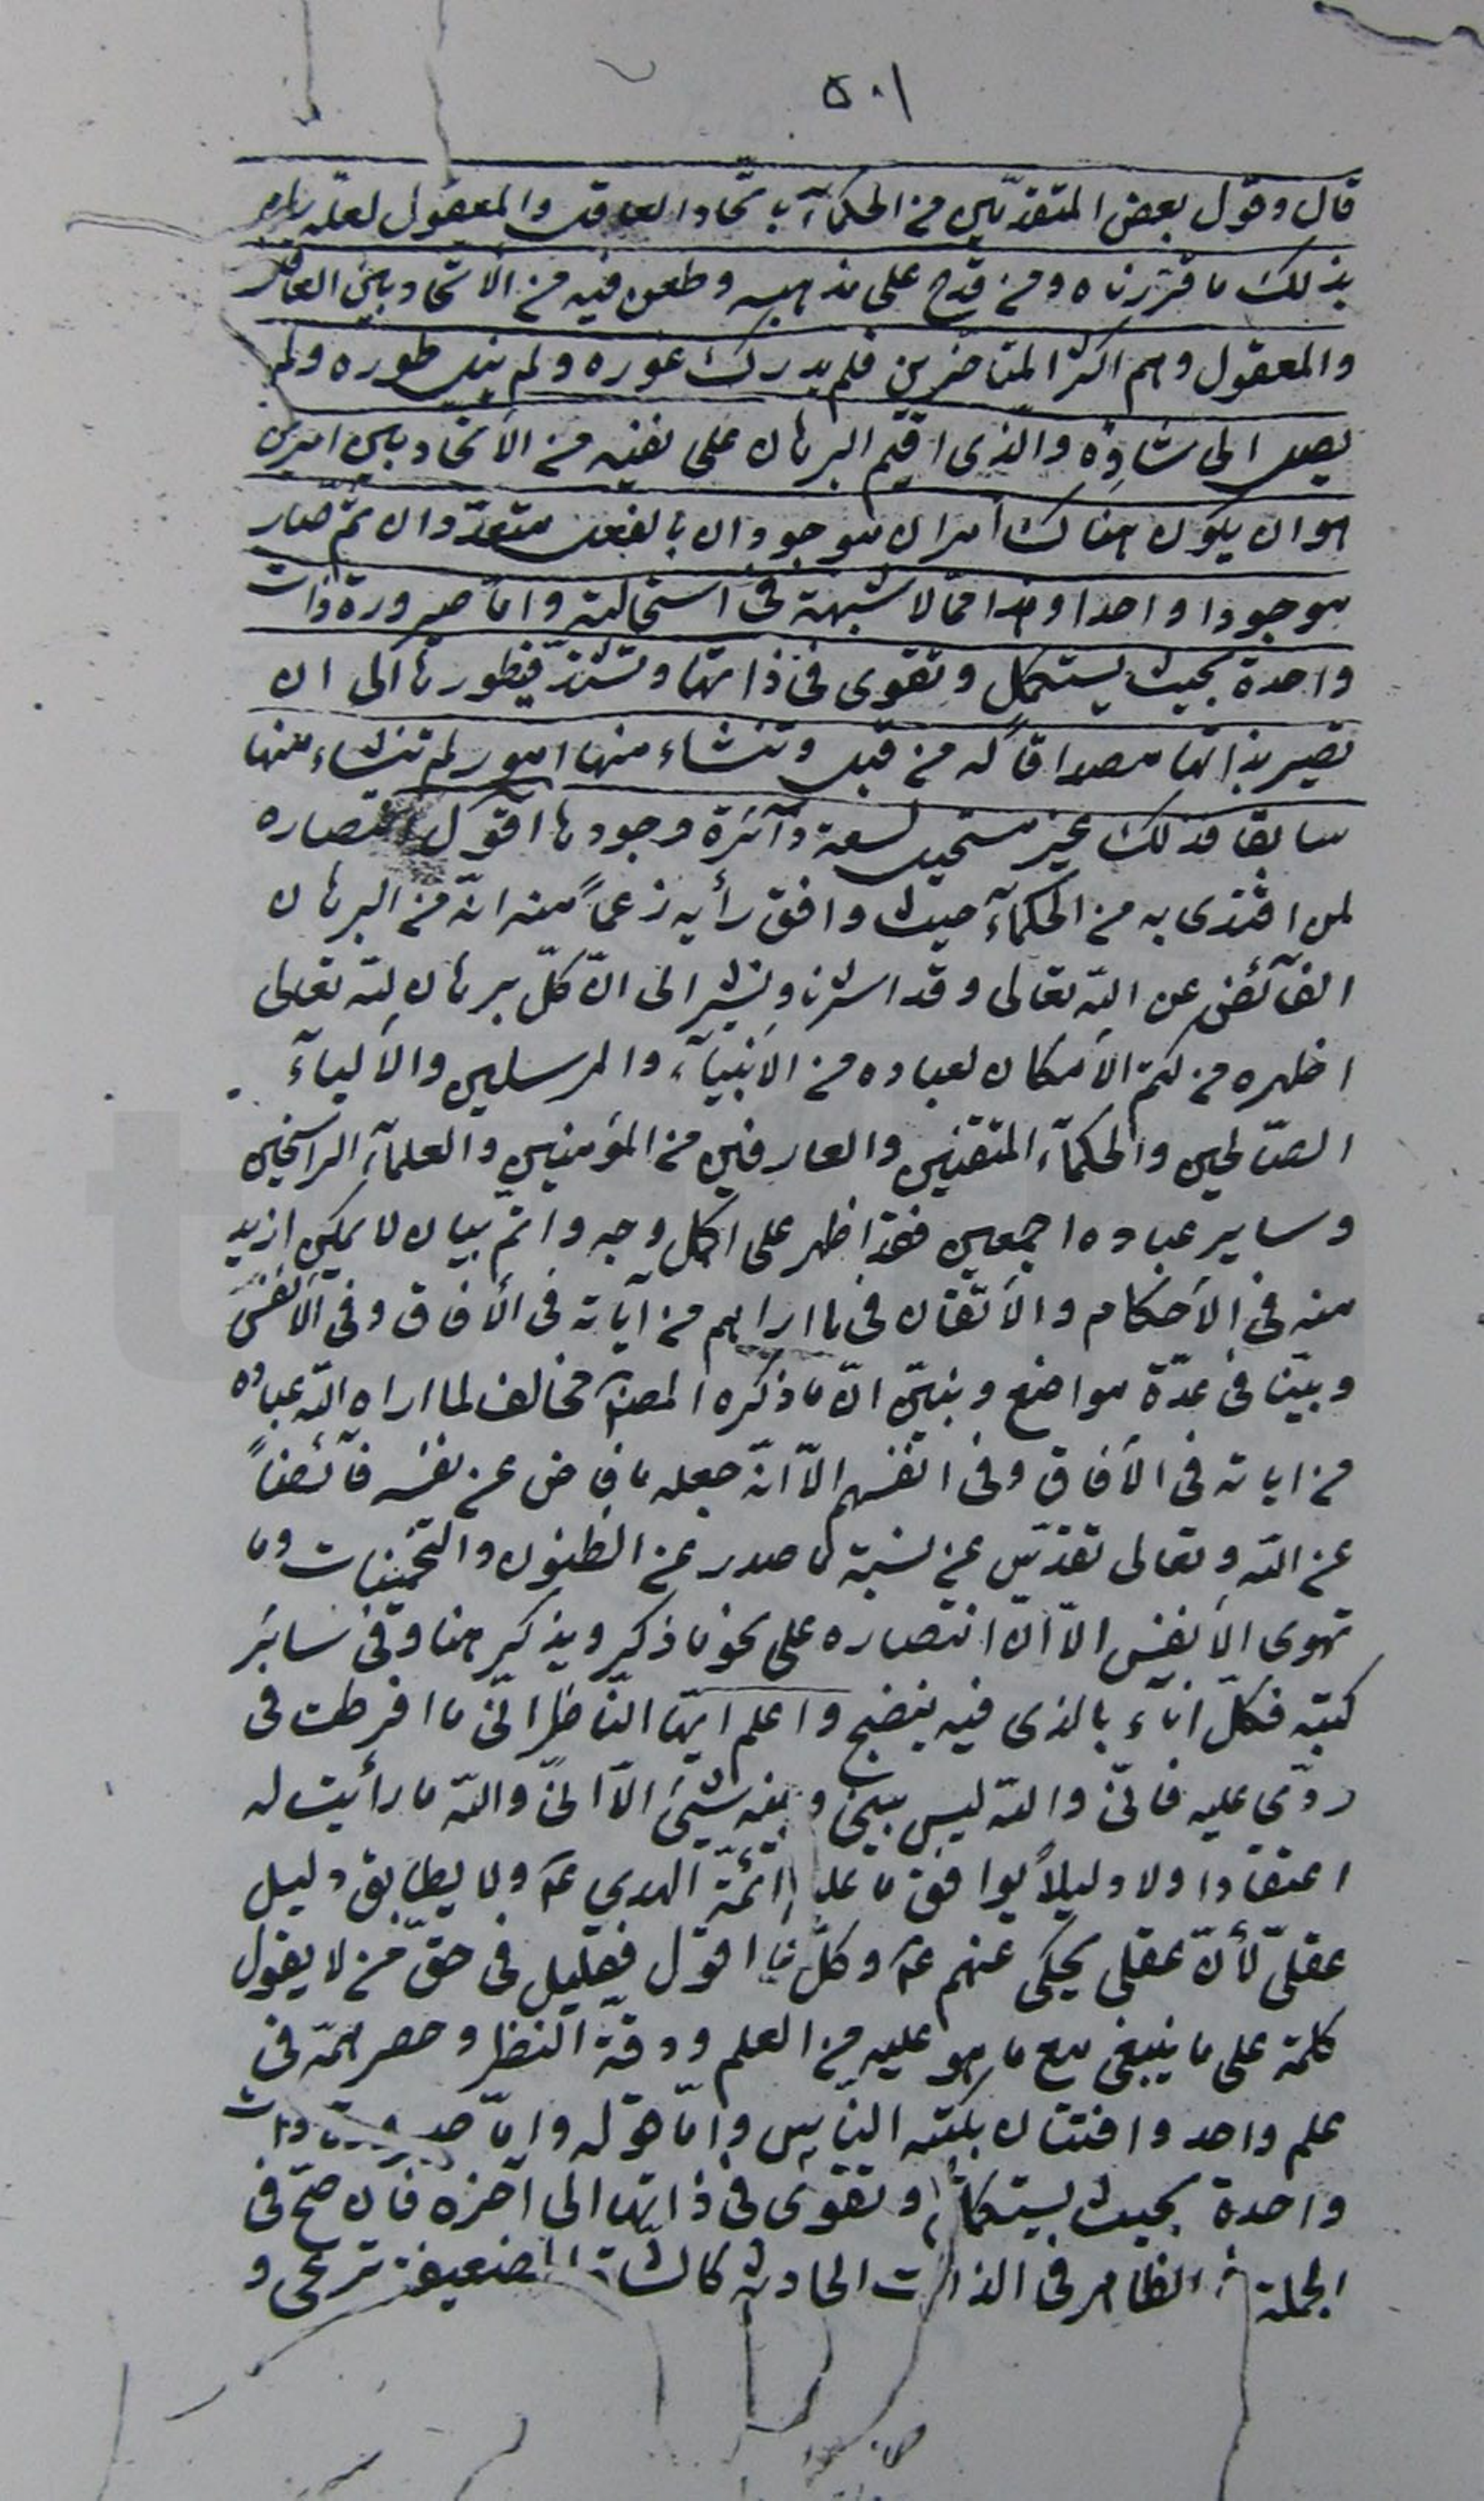 ٥٠١
قال وقول بعض المتقدّمين من الحكمآء باتّحاد العاقل والمعقول لعلّه اراد
بذلك ما قرّرناه ومن قدح على مذهبه وطعن فيه من الاتّحاد بين العاقل
والمعقول وهم اكثر المتأخّرين فلم يدرك غوره ولم ينل طوره ولم
يصل الى شأوه والذى اقيم البرهان على نفيه من الاتّحاد بين امرين
هو ان يكون هناك امران موجودان بالفعل متعدّدان ثمّ صار
موجودا واحدا وهذا ممّا لا شبهة فى استحالته وامّا صيرورة ذات
واحدة بحيث يستكمل وتقوى فى ذاتها وتشتدّ فى طورها الى ان
تصير بذاتها مصداقاً له من قبل وتنشاء منها امور لم تنشاء منها
سابقا فذلك غير مستحيل لسعة دآئرة وجودها اقول انتصاره
لمن اقتدى به من الحكمآء حيث وافق رأيه زعماً منه انّه من البرهان
الفآئض عن اللّه تعالى وقد اشرنا ونشير الى انّ كلّ برهان للّه تعالى
اظهره من كتم الأمكان لعباده من الأنبيآء والمرسلين والأوليآء
الصّالحين والحكمآء المتقنين والعارفين من المؤمنين والعلمآء الراسخين
وساير عباده اجمعين فقد اظهر على اكمل وجه واتمّ بيان لا يمكن ازيد
منه فى الأحكام والأتقان فى ما اراهم من آياته فى الأفاق وفى الأنفس
وبيّنا فى عدّة مواضع ونبيّن انّ ما ذكره المصنّف مخالف لما اراه اللّه عباده
من اياته فى الأفاق وفى انفسهم الّا انّه جعله ما فاض عن نفسه فآئضاً
عن اللّه وتعالى تقدّس عن نسبة ما صدر عن الظنون والتخمينات وما
تهوى الأنفس الّا انّ انتصاره على نحو ما ذكر ويذكر هنا وفى سائر
كتبه فكلّ انآء بالذى فيه ينضح واعلم ايّها النّاظر انّى ما افرطت فى
ردّى عليه فانّى واللّه ليس بينى وبينه شيئ الّا انّى واللّه ما رأيت له
اعتقادا ولا دليلاً يوافق ما عليه ائمّة الهدى ع ولا يطابق دليل
عقلىّ لأنّ عقلى يحكى عنهم ع وكلّ ما اقول فقليل فى حقّ من لا يقول
كلمة على ما ينبغى مع ما هو عليه من العلم ودقّة النظر وحصر همّه فى
علم واحد وافتتان بكتبه النّاس وامّا قوله وامّا صيرورة ذات
واحدة بحيث يستكمل وتقوى فى ذاتها الى آخره فان صحّ فى
الجملة فى الظاهر فى الذات الحادثة كالشاة الضعيفة ترعى و